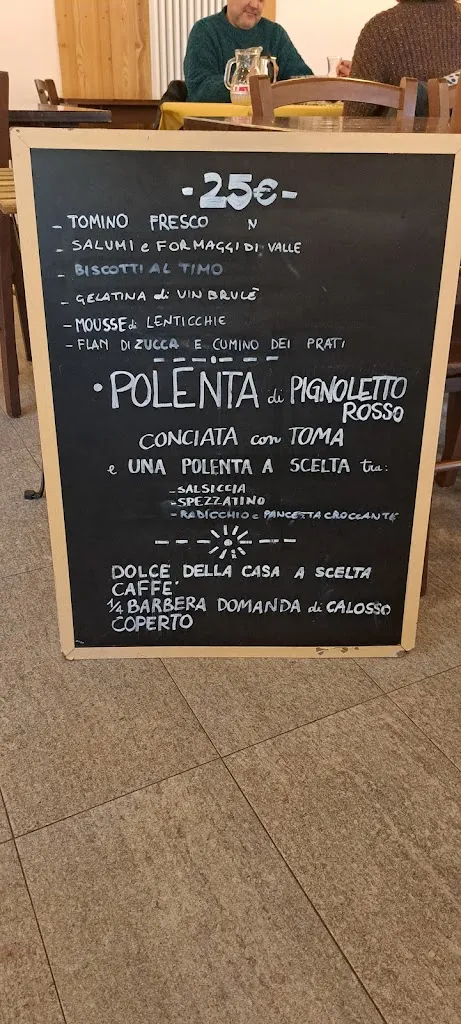 -25€-
- TOMINO FRESCO N
- SALUMI e FORMAGGI DI VALLE
- BISCOTTI AL TIMO
- GELATINA di VIN BRULÈ
- MOUSSE di LENTICCHIE
- FLAN DI ZUCCA E CUMINO DEI PRATI
• POLENTA di PIGNOLETTO
ROSSO
CONCIATA con TOMA
e UNA POLENTA A SCELTA tra:
- SALSICCIA
- SPEZZATINO
- RADICCHIO e PANCETTA CROCCANTE
DOLCE DELLA CASA A SCELTA
CAFFE'
1/4 BARBERA DOMANDA di CALOSSO
COPERTO